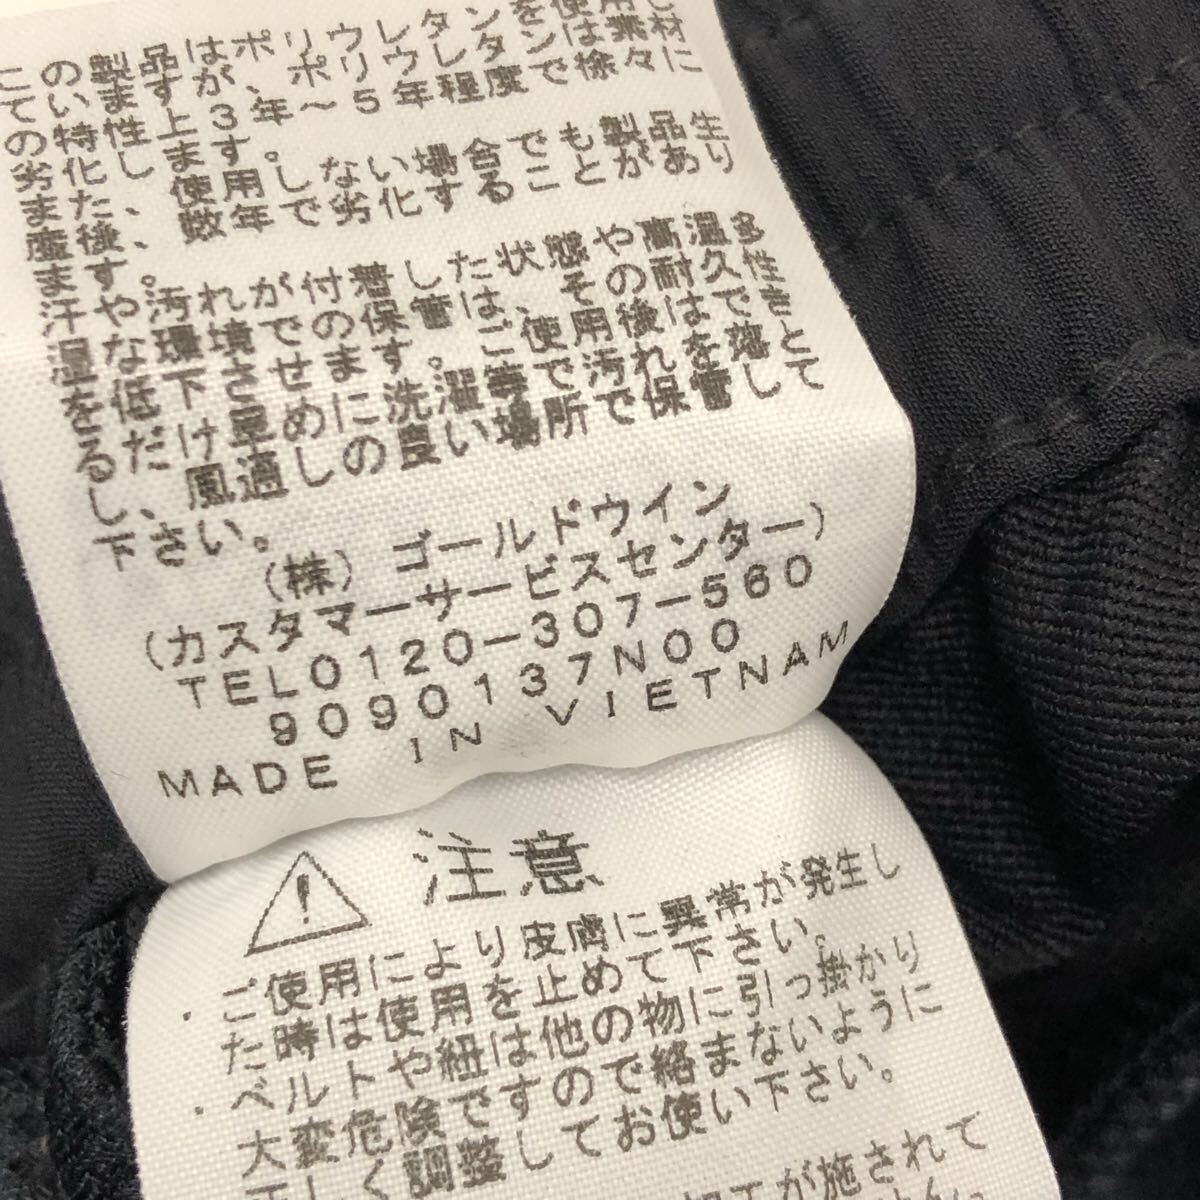 この製品はポリウレタンを使用し
ていますが、ポリウレタンは素材
の特性上3年～5年程度で徐々に
劣化します。
また、使用しない場合でも製品生
産後、数年で劣化することがあり
ます。
汗や汚れが付着した状態や高温多
湿な環境での保管は、その耐久性
を低下させます。ご使用後はできる
だけ早めに洗濯等で汚れを落として
、風通しの良い場所で保管して
下さい。
(株)ゴールドウイン
(カスタマーサービスセンター)
TEL0120-307-560
9090137N00
MADE IN VIETNAM
注意
・ご使用により皮膚に異常が発生し
た時は使用を止めて下さい。
・ベルトや紐は他の物に引っ掛かり
大変危険ですので絡まないように
正しく調整してお使い下さい。
加工が施されて